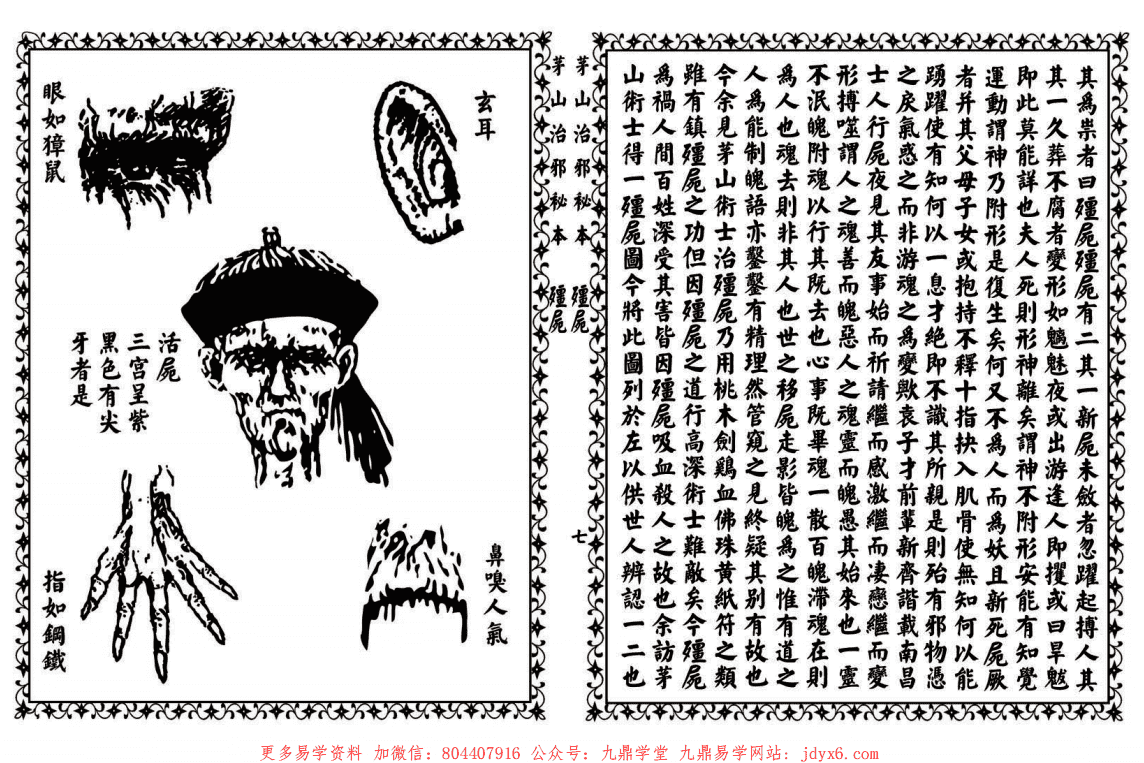 其為祟者曰殭屍殭屍有二其一新屍未斂者忽躍起搏人其
其一久葬不腐者變形如魑魅夜或出游逢人即攫或曰旱魃
即此莫能詳也夫人死則形神離矣謂神不附形安能有知覺
運動謂神乃附形是復生矣何又不為人而為妖且新死屍厥
者并其父母子女或抱持不釋十指抉入肌骨使無知何以能
踴躍使有知何以一息才絕即不識其所親是則殆有邪物憑
之戾氣惑之而非游魂之為變歟袁子才前輩新齊諧載南昌
士人行屍夜見其友事始而祈請繼而感激繼而凄戀繼而變
形搏噬謂人之魂善而魄惡人之魂靈而魄愚其始來也一靈
不泯魄附魂以行其既去也心事既畢魂一散百魄滯魂在則
為人也魂去則非其人也世之移屍走影皆魄為之惟有道之
人為能制魄語亦鑿鑿有精理然管窺之見終疑其別有故也
今余見茅山術士治殭屍乃用桃木劍鷄血佛珠黄紙符之類
雖有鎮殭屍之功但因殭屍之道行高深術士難敵矣今殭屍
為禍人間百姓深受其害皆因殭屍吸血殺人之故也余訪茅
山術士得一殭屍圖今將此圖列於左以供世人辨認一二也
茅山治邪秘本 殭屍
茅山治邪秘本 殭屍
七
玄耳
眼如獐鼠
活屍
三宫呈紫
黑色有尖
牙者是
鼻嗅人氣
指如鋼鐵
更多易学资料 加微信：804407916 公众号：九鼎学堂 九鼎易学网站：jdyx6.com